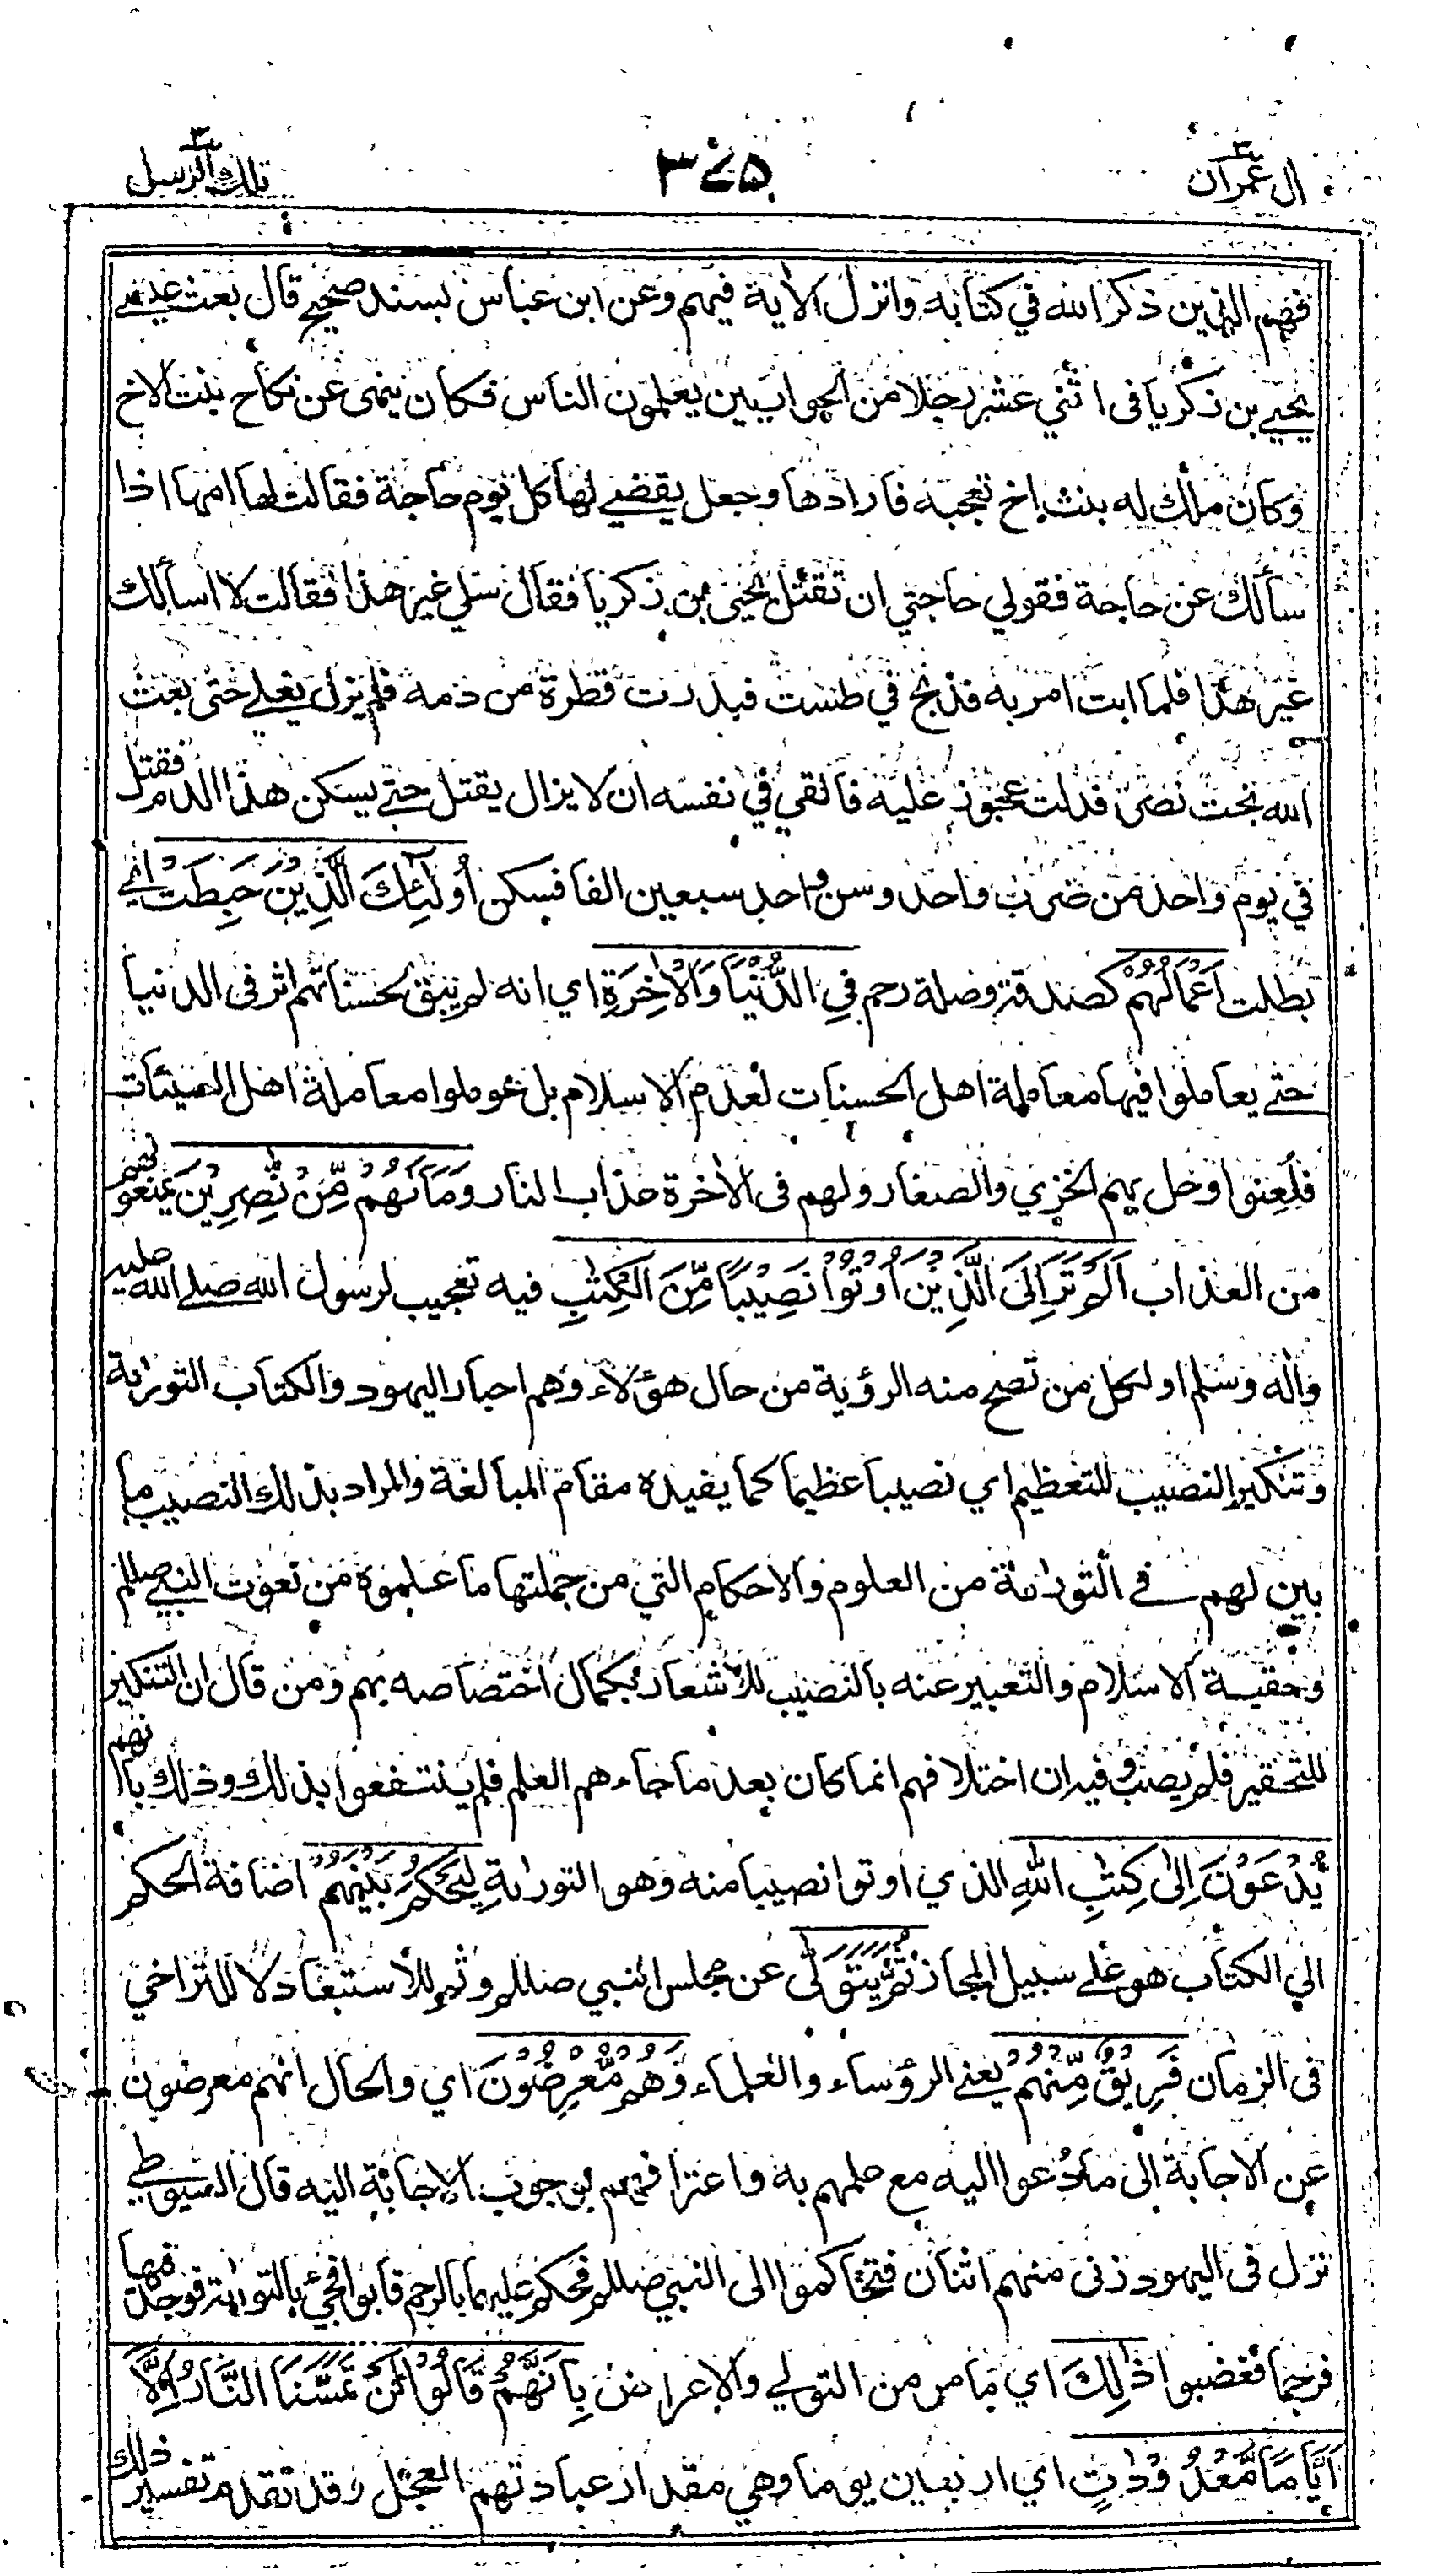 ال عمران ٣
٣٧٥
تلك الرسل ٣
فهم الذين ذكر الله في كتابه وانزل الاية فيهم وعن ابن عباس بسند صحيح قال بعث عيسے
يحيے بن زكريا فى اثني عشر رجلا من الحواريين يعلمون الناس فكان ينهى عن نكاح بنت الاخ
وكان ملك له بنت اخ تعجبه فارادها وجعل يقضے لها كل يوم حاجة فقالت لها امها اذا
سألك عن حاجة فقولي حاجتي ان تقتل يحيى بن زكريا فقال سلي غير هذا فقالت لا اسألك
غير هذا فلما ابت امر به فذبح في طست فبدرت قطرة من دمه فلم يزل يغلے حتى بعث
الله بخت نصر فدلت عجوز عليه فالقي في نفسه ان لا يزال يقتل حتے يسكن هذا الدم فقتل
في يوم واحد من ضرب واحد وسن واحد سبعين الفا فسكن أُولٰٓئِكَ الَّذِيْنَ حَبِطَتْ اي
بطلت اَعْمَالُهُمْ كصدقة وصلة رحم فِي الدُّنْيَا وَالْاٰخِرَةِ اي انه لم يبق لحسناتهم اثر فى الدنيا
حتے يعاملوا فيها معاملة اهل الحسنات لعدم الاسلام بل عوملوا معاملة اهل السيئات
فلُعِنوا وحل بهم الخزي والصغار ولهم فى الاخرة عذاب النار وَمَا لَهُمْ مِّنْ نّٰصِرِيْنَ يمنعونهم
من العذاب اَلَمْ تَرَ اِلَى الَّذِيْنَ اُوْتُوْا نَصِيْبًا مِّنَ الْكِتٰبِ فيه تعجيب لرسول الله صلے الله عليه
واٰله وسلم او لكل من تصح منه الرؤية من حال هؤلاء وهم احبار اليهود والكتاب التورٰىة
وتنكير النصيب للتعظيم اي نصيبا عظيما كما يفيده مقام المبالغة والمراد بذلك النصيب ما
بين لهم فے التورٰىة من العلوم والاحكام التي من جملتها ما علموه من نعوت النبے صللم
وحقية الاسلام والتعبير عنه بالنصيب للاشعار بكمال اختصاصه بهم ومن قال ان التنكير
للتحقير فلم يصب وفيه ان اختلافهم انما كان بعد ما جاءهم العلم فلم ينتفعوا بذلك وذلك بانهم
يُدْعَوْنَ اِلٰى كِتٰبِ اللّٰهِ الذي اوتوا نصيبا منه وهو التورٰىة لِيَحْكُمَ بَيْنَهُمْ اضافة الحكم
الي الكتاب هو علے سبيل المجاز ثُمَّ يَتَوَلّٰى عن مجلس النبي صللم وثم للاستبعاد لا للتراخي
فى الزمان فَرِيْقٌ مِّنْهُمْ يعنے الرؤساء والعلماء وَهُمْ مُّعْرِضُوْنَ اي والحال انهم معرضون
عن الاجابة الى ما دُعوا اليه مع علمهم به واعترافهم بوجوب الاجابة اليه قال السيوطي
نزل فى اليهود زنى منهم اثنان فتحاكموا الى النبي صللم فحكم عليهما بالرجم فابوا فجئ بالتورٰىة فوجد فيها
فرجما فغضبوا ذٰلِكَ اي ما مر من التولي والاعراض بِاَنَّهُمْ قَالُوْا لَنْ تَمَسَّنَا النَّارُ اِلَّا
اَيَّامًا مَّعْدُوْدٰتٍ اي اربعين يوما وهي مقدار عبادتهم العجل وقد تقدم تفسير ذلك